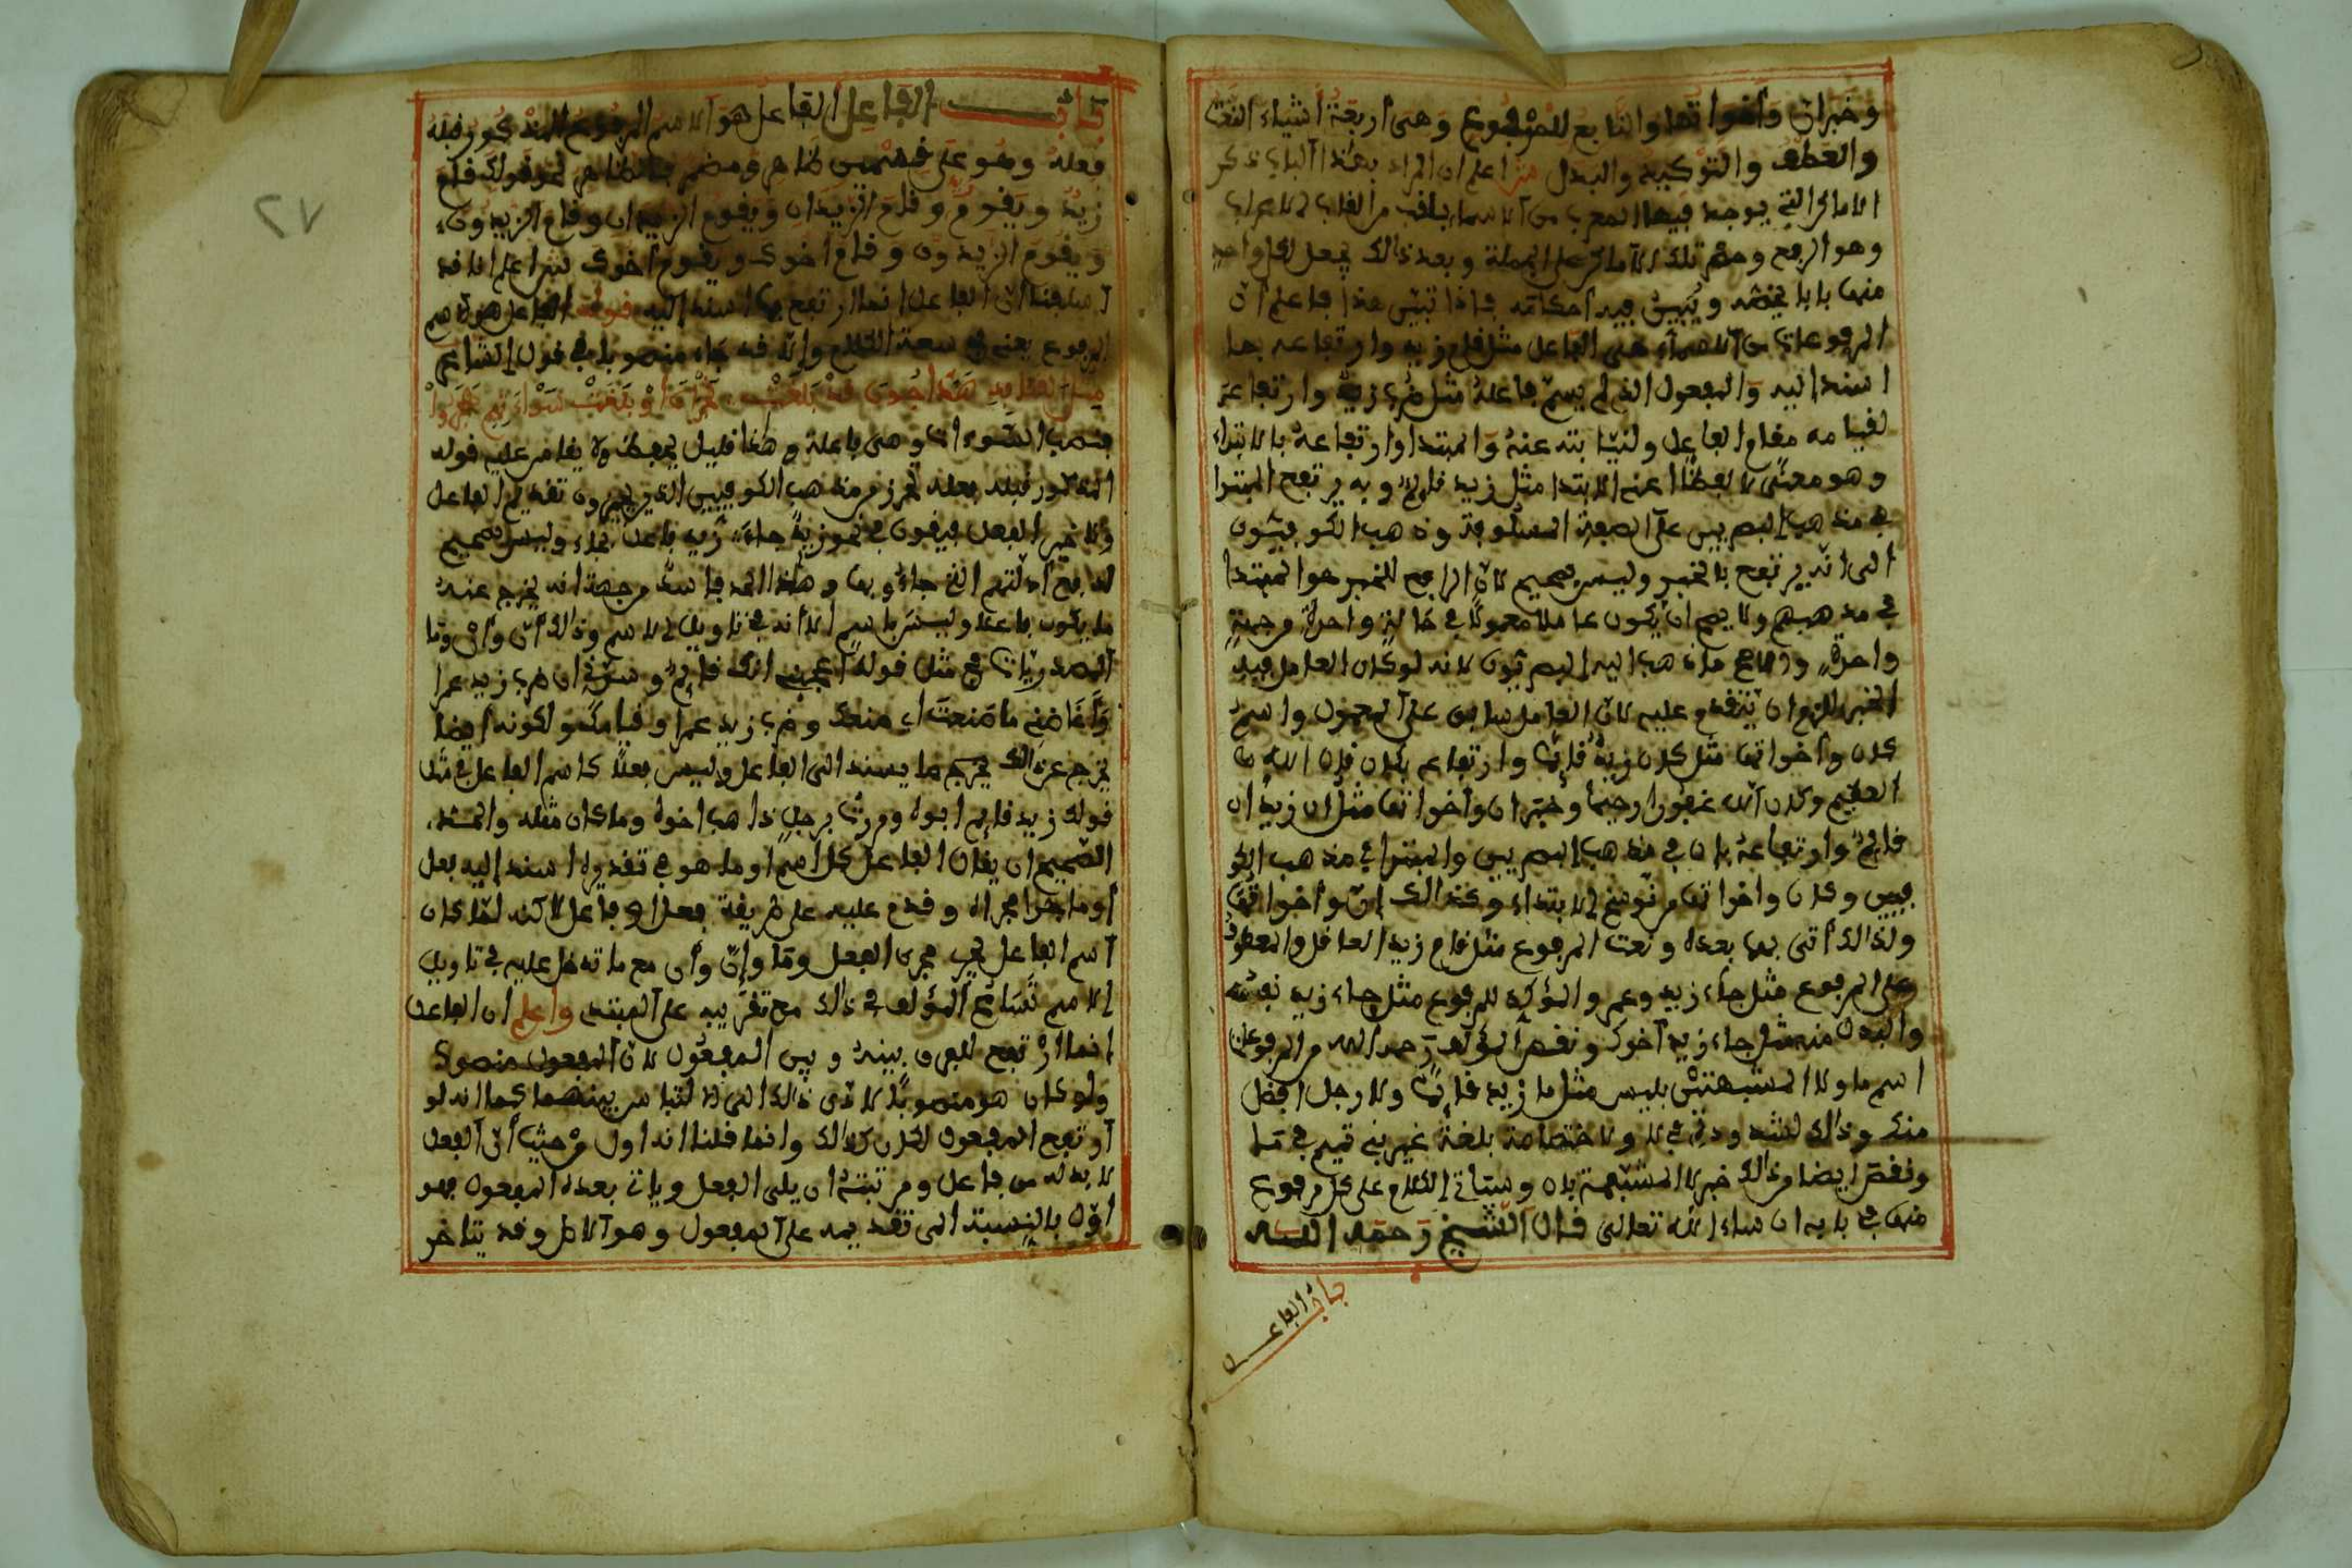 وخبر ان وأخواتها والتابع للمرفوع وهي أربعة أشياء النعت
والعطف والتوكيد والبدل اعلم ان المراد بهذا الباب ذكر
الاماكن التي يوجد فيها المعرب من الاسماء بلقب من القاب الاعراب
وهو الرفع وحصر تلك الاماكن على الجملة وبعد ذالك يجعل لكل واحد
منها بابا يخصه ويبين فيه احكامه فإذا تبين هذا فاعلم أن
المرفوعات من الاسماء هي الفاعل مثل قام زيد وارتفاعه بما
اسند اليه والمفعول الذي لم يسم فاعله مثل ضرب زيد وارتفاعه
لقيامه مقام الفاعل ولنيابته عنه والمبتدا وارتفاعه بالابتداء
وهو معنى لا لفظا اعني الابتدا مثل زيد قايم وبه يرتفع المبتدا
في مذهب البصريين على الصفة المذكورة وذهب الكوفيون
الى انه يرتفع بالخبر وليس بصحيح لان الرافع للخبر هو المبتدا
في مذهبهم ولا يصح ان يكون عاملا معمولا في حالة واحدة وجهة
واحدة والاصح ما ذهب اليه البصريون لانه لو كان العامل فيه
الخبر للزم ان يتقدم عليه لان العامل سابق على المعمول واسم
كان وأخواتها مثل كان زيد قايما وارتفاعه بكان قال الله
العظيم وكان الله غفورا رحيما وخبر ان وأخواتها مثل ان زيدا
قايم وارتفاعه بان في مذهب البصريين والمبتدا في مذهب الكو
فيين وكان واخواتها من نواسخ الابتداء وكذالك إن وأخواتها
ولذالك أتى بها بعده ونعت المرفوع مثل قام زيد العاقل والمعطوف
على المرفوع مثل جاء زيد وعمر والمؤكد للمرفوع مثل جاء زيد نفسه
والبدل منه مثل جاء زيد أخوك ونقص المؤلف رحمه الله من المرفوعات
اسم ما ولا المشبهتين بليس مثل ما زيد قايما ولا رجل افضل
منك وذالك لشذوذ في لا ولاختصاصه بلغة غير بني تميم في ما
ونقص ايضا من ذالك خبر لا المشبهة بان وسيأتي الكلام على كل مرفوع
منها في بابه ان شاء الله تعالى قال الشيخ رحمه الله
باب الفاعل
٢٧
باب الفاعل الفاعل هو الاسم المرفوع المذكور قبله
فعله وهو على قسمين ظاهر ومضمر فالظاهر نحو قولك قام
زيد ويقوم زيد وقام الزيدان ويقوم الزيدان وقام الزيدون
ويقوم الزيدون وقام أخوك ويقوم أخوك اعلم انا قد
اسلفنا أن الفاعل انما ارتفع بما اسند اليه قوله الفاعل هو الاسم
المرفوع يعني في سعة الكلام وإلا فقد جاء منصوبا في قول الشاعر
مثل القنافذ هداجون قد بلغت نجران أو بلغت سوءاتهم هجر
فنصب السوءات وهي فاعلة وهذا قليل يحفظ ولا يقاس عليه قوله
المذكور قبله فعله تحرز من مذهب الكوفيين الذين يجيزون تقديم الفاعل
ولا على الفعل فيقولون في نحو زيد جاء زيد فاعل بجاء وليس بصحيح
لدفع أدلتهم التي جاءوا بها وهذا الحد فاسد من جهة انه يخرج عنه
ما يكون فاعلا وليس باسم الا انه في تاويل الاسم وذالك أن وأن وما
المصدريات في مثل قوله أعجبني انك قايم وسرني ان ضرب زيد عمرا
وأغاضني ما صنعت اي صنعك وضرب زيد عمرا وقيامك ولكونه ايضا
يخرج عن ذالك يخرج ما يسند الى الفاعل وليس فعلا كاسم الفاعل في مثل
قولك زيد قايم ابوه ومررت برجل ذاهب اخوه وما كان مثله والحد
الصحيح ان يقال الفاعل كل اسم او ما هو في تقديره اسند اليه فعل
أو ما جرا مجراه وقدم عليه على طريقة فعل او فاعل لاكنه لما كان
اسم الفاعل يجري مجرى الفعل وما وإن وأن مع ما تدخل عليه في تاويل
الاسم تسامح المؤلف في ذالك مع تقريبه على المبتدي واعلم ان الفاعل
انما ارتفع للفرق بينه وبين المفعول لان المفعول منصوب
ولو كان هو منصوبا لادى ذالك الى الالتباس بينهما كما انه لو
ارتفع المفعول لكان كذالك وانما قلنا انه اول من حيث أن الفعل
لا بد له من فاعل ومرتبته ان يلي الفعل وياتي بعده المفعول فهو
اول بالنسبة الى تقديمه على المفعول وهو الاصل وقد يتاخر